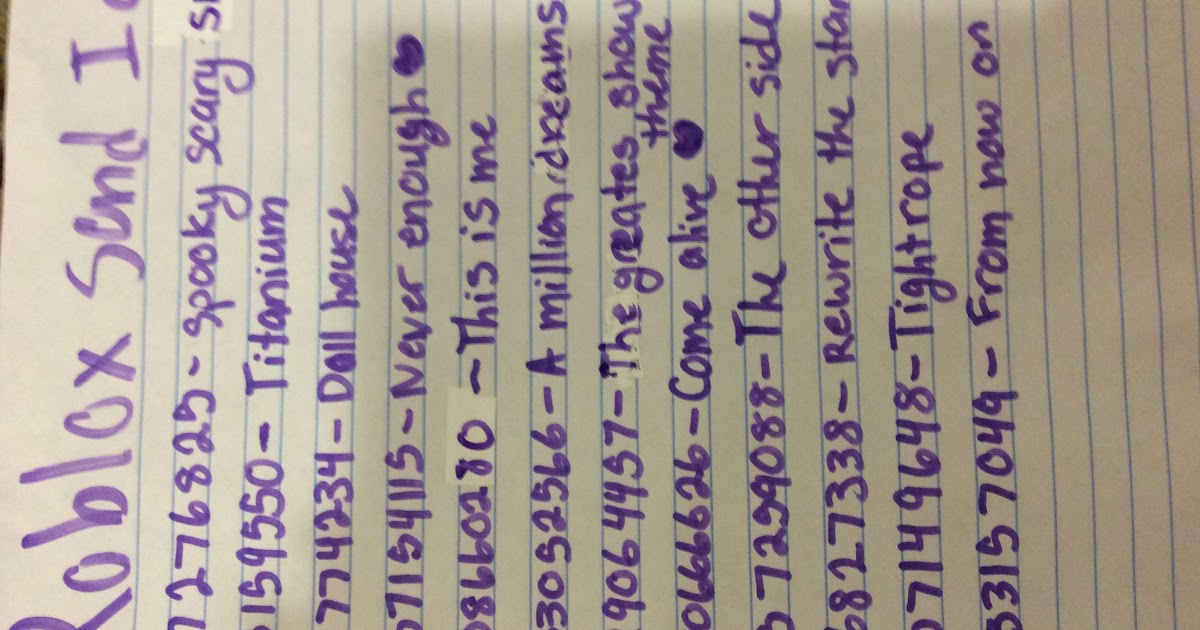 Roblox Send I
7276825 - Spooky scary s
159550 - Titanium
774234 - Doll house
07154115 - Never enough ♥
08660280 - This is me
33052566 - A million dreams
90644457 - The greates show theme
0666626 - Come alive ♥
572599088 - The other side
6827338 - Rewrite the star
07149648 - Tightrope
33157049 - From now on